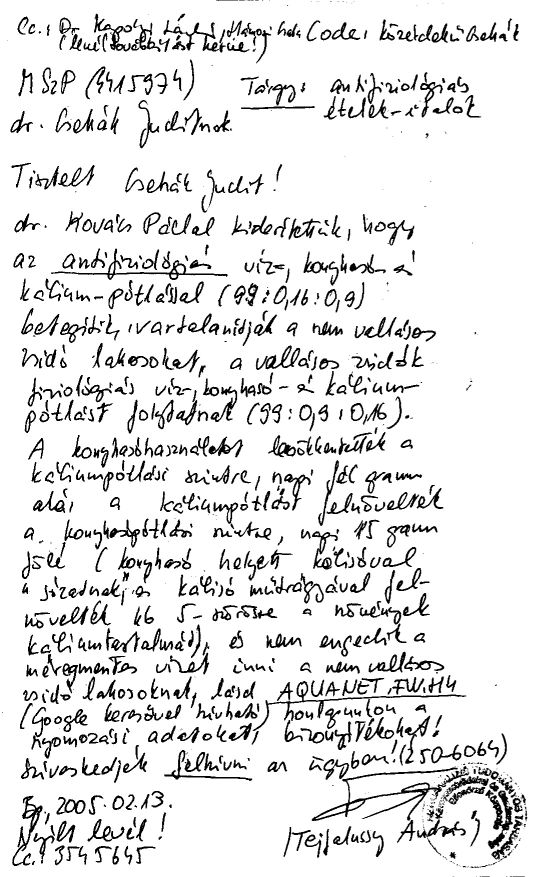 Cc.: Dr. Kapolyi László, Code, közérdekű Csehák
MSzP (4415974) Tárgy: antifiziológiás
dr. Csehák Juditnak. ételek-italok
Tisztelt Csehák Judit!
dr. Kovács Pállal kiderítettük, hogy
az antifiziológiás víz-, konyhasó- és
kálium-pótlással (99:0,16:0,9)
betegítik, ivartalanítják a nem vallásos
zsidó lakosokat, a vallásos zsidók
fiziológiás víz-, konyhasó- és kálium-
pótlást folytatnak (99:0,9:0,16).
A konyhasóhasználatot lecsökkentették a
káliumpótlási szintre, napi fél gramm
alá, a káliumpótlást felnövelték
a konyhasópótlási szintre, napi 15 gramm
fölé (konyhasó helyett kálisóval
"sózatnak", és kálisó műtrágyával fel-
növelték kb 5-szörösre a növények
káliumtartalmát), és nem engedik a
méregmentes vizet inni a nem vallásos
zsidó lakosoknak, lásd AQUANET.FW.H4
(Google keresővel hívható) honlapunkon a
nyomozási adatokat, bizonyítékokat!
Szíveskedjék felhívni az ügyben! (250-6064)
Bp, 2005.02.13.
Nyílt levél! (Tejfalussy András)
Cc.: 3545645